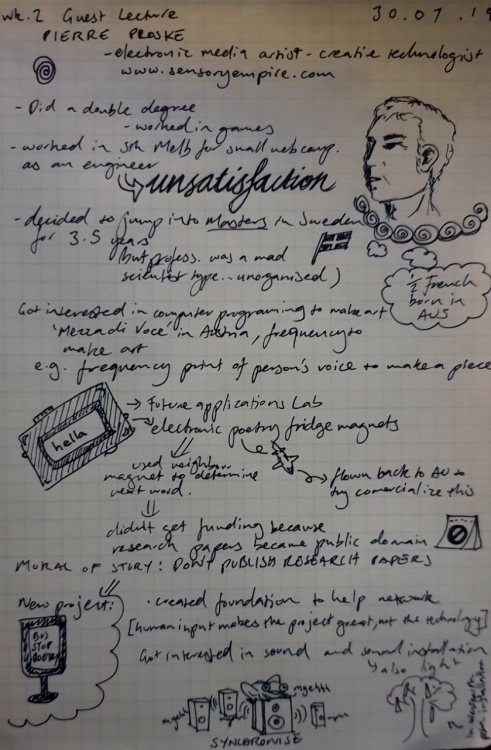 wk.2 Guest Lecture
30.07.19
PIERRE PROSKE
- electronic media artist - creative technologist
www.sensoryempire.com
- Did a double degree
- worked in games
- worked in Sth Melb for small webcomp.
as an engineer
unsatisfaction
- decided to jump into Masters in Sweden
for 3.5 years
(but profess. was a mad
scientist type.. unorganised)
1/2 French
born in
AUS
Got interested in computer programing to make art
'Mezza di Voce' in Austria, frequency to
make art
e.g. frequency print of person's voice to make a piece
hella
→ Future applications Lab
→ electronic poetry fridge magnets
used neighbour
magnet to determine
next word.
flown back to AU to
try comercialize this
didn't get funding because
research papers became public domain
MORAL OF STORY: DON'T PUBLISH RESEARCH PAPERS
New project:
· created foundation to help network
[human input makes the project great, not the technology]
BUS
STOP
POETRY
Got interested in sound and sound installation
also light
myehhh
SYNCHRONISE